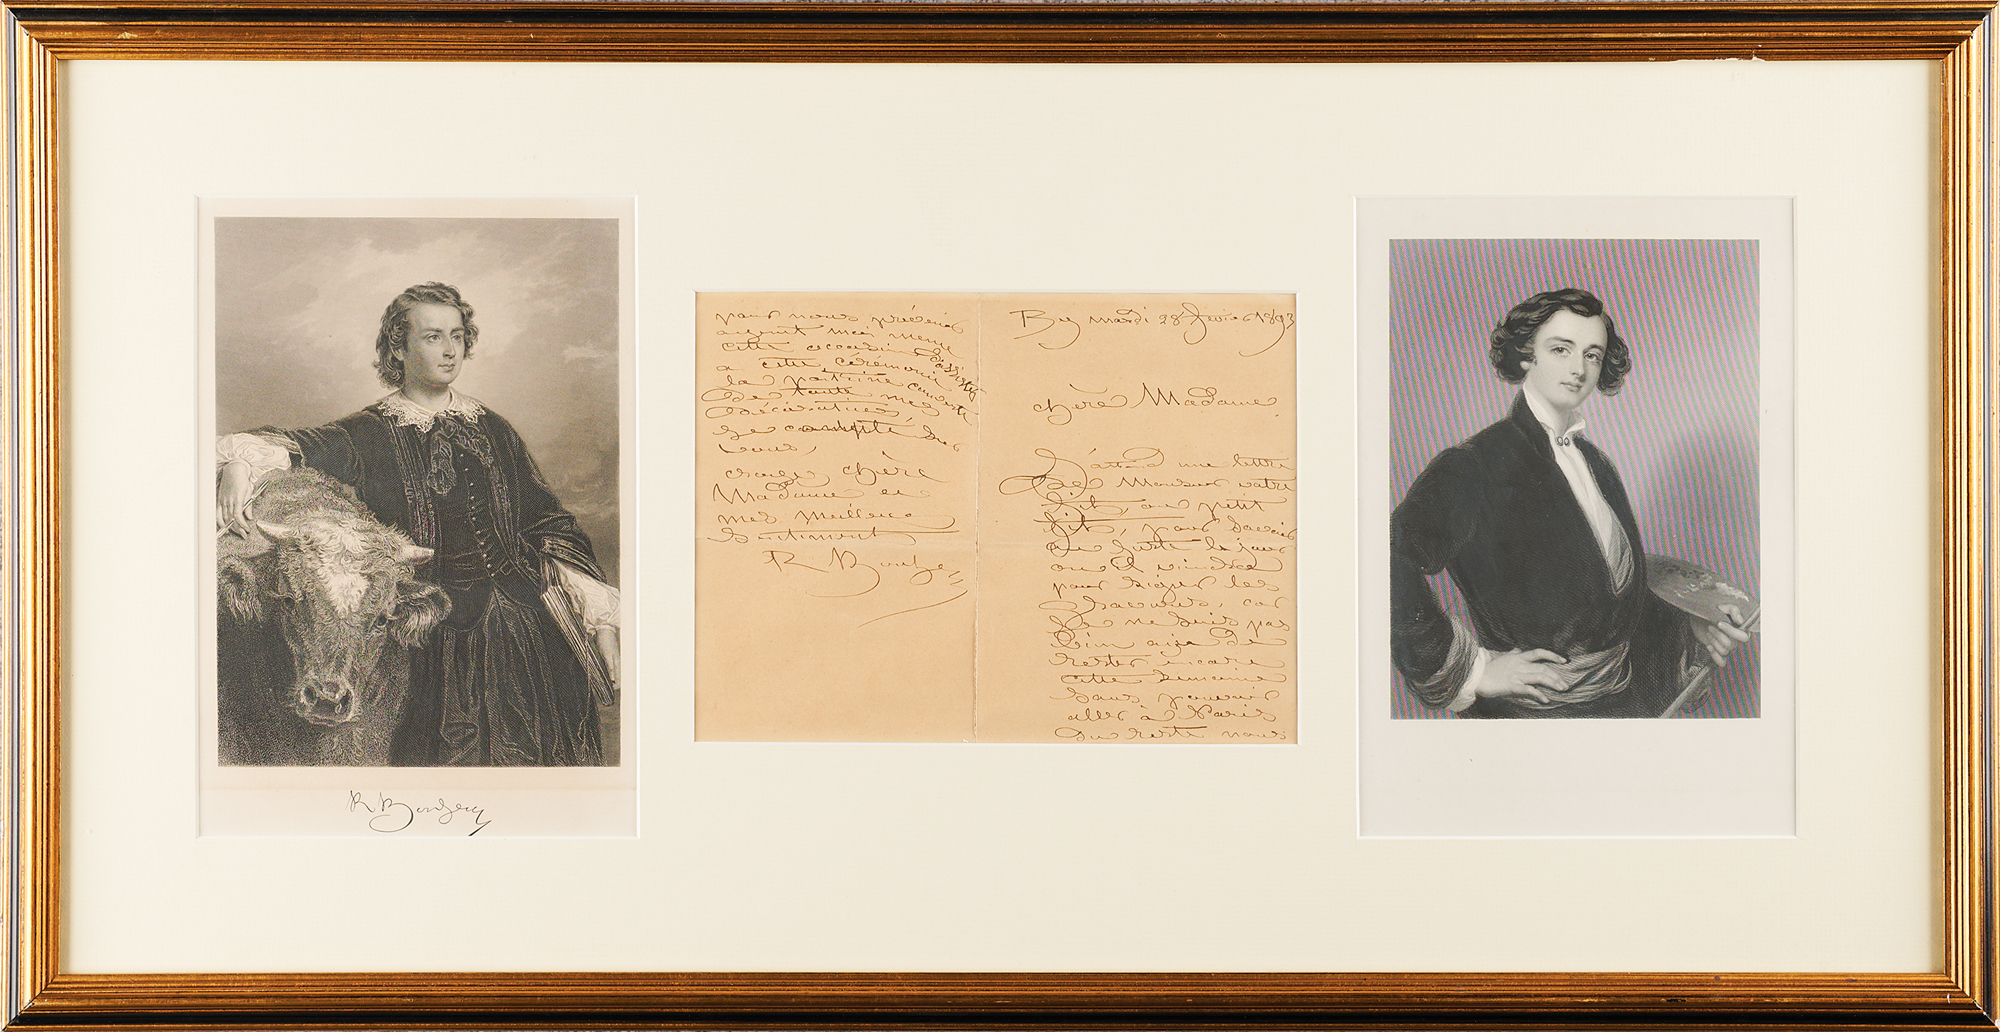 pour nous prévenir
ayent moi même
cette occasion d'assister
a cette cérémonie
la patrine couverte
de toute mes
décorations,
je compte sur
vous,
chère
Madame en
mes meilleurs
sentiments
R Bonheur
By mardi 28 fevrier 1893
chère Madame
J'attend une lettre
de Monsieur votre
fils, ou petit
fils, pour savoir
au juste le jour
ou il viendra
pour signer les
car
je ne suis pas
bien aise de
rester encore
cette semaine
sans pouvoir
aller à Paris
du reste nous
R Bonheur